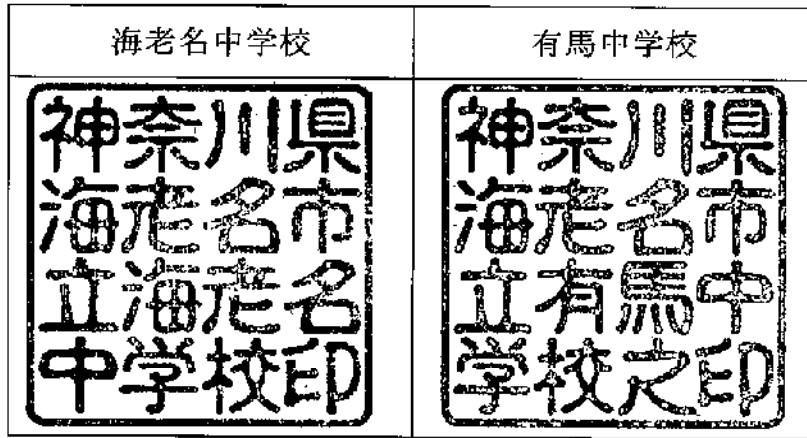 海老名中学校
有馬中学校
神奈川県
海老名市
立海老名
中学校印
神奈川県
海老名市
立有馬中
学校之印